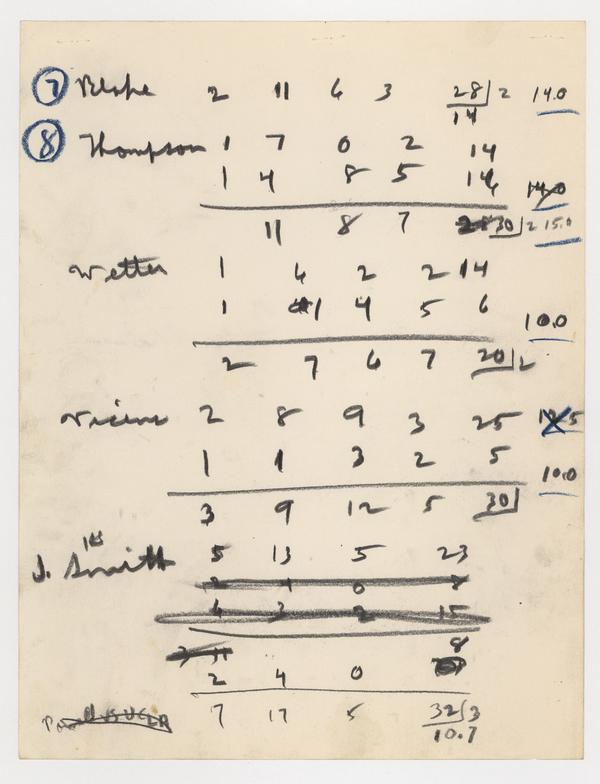 7 Blake 2 11 6 3 28 2 14.0
14
8 Thompson 1 7 0 2 14
1 4 8 5 14.0
11 8 7 30 2 15.0
Wetter 1 6 2 2 14
1 1 4 5 6 10.0
2 7 6 7 20 2
2 8 9 3 25
1 1 3 2 5 10.0
3 9 12 5 30
J. Smith 5 13 5 23
2 4 0 8
4 3 2 15
8
2 4 0
7 17 5 32 3
10.7